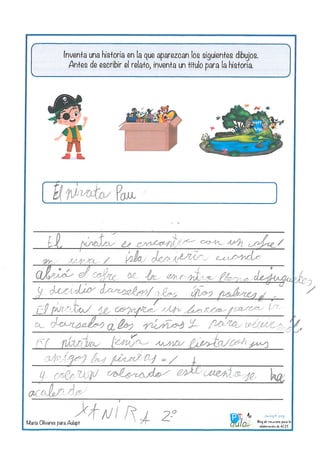 Inventa una historia en la que aparezcan los siguientes dibujos.
Antes de escribir el relato, inventa un título para la historia.
El pirata Pau
El pirata se encontra con un cofre
en una isla decierta cuando
abrió el cofre se lo encontra lleno de juguetes,
y decidio darselos a los niños pobres.
El pirata se compró un barco para ir
a darselos a los niños y para
El pirata tenia una fiesta con sus
amigos los piratas
y colorin colorado este cuento se ha
acabado
XANIRA 2º
María Olivares para Aula
aula